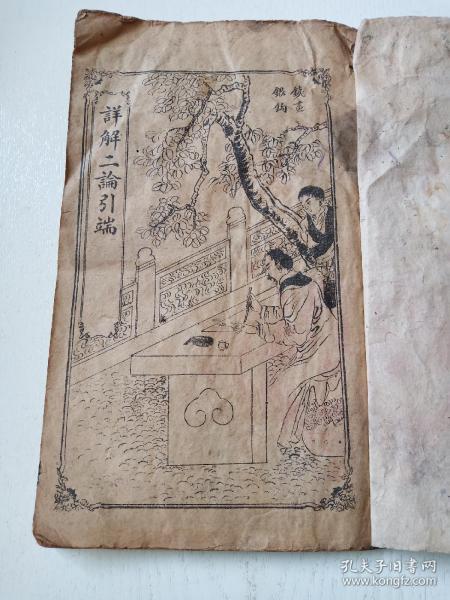 詳解二論引端
鐵畫
銀鉤
孔夫子旧书网
www.kongfz.com